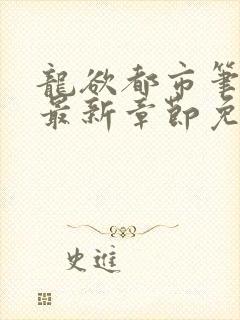 龍欲都市筆
最新章節免
史進